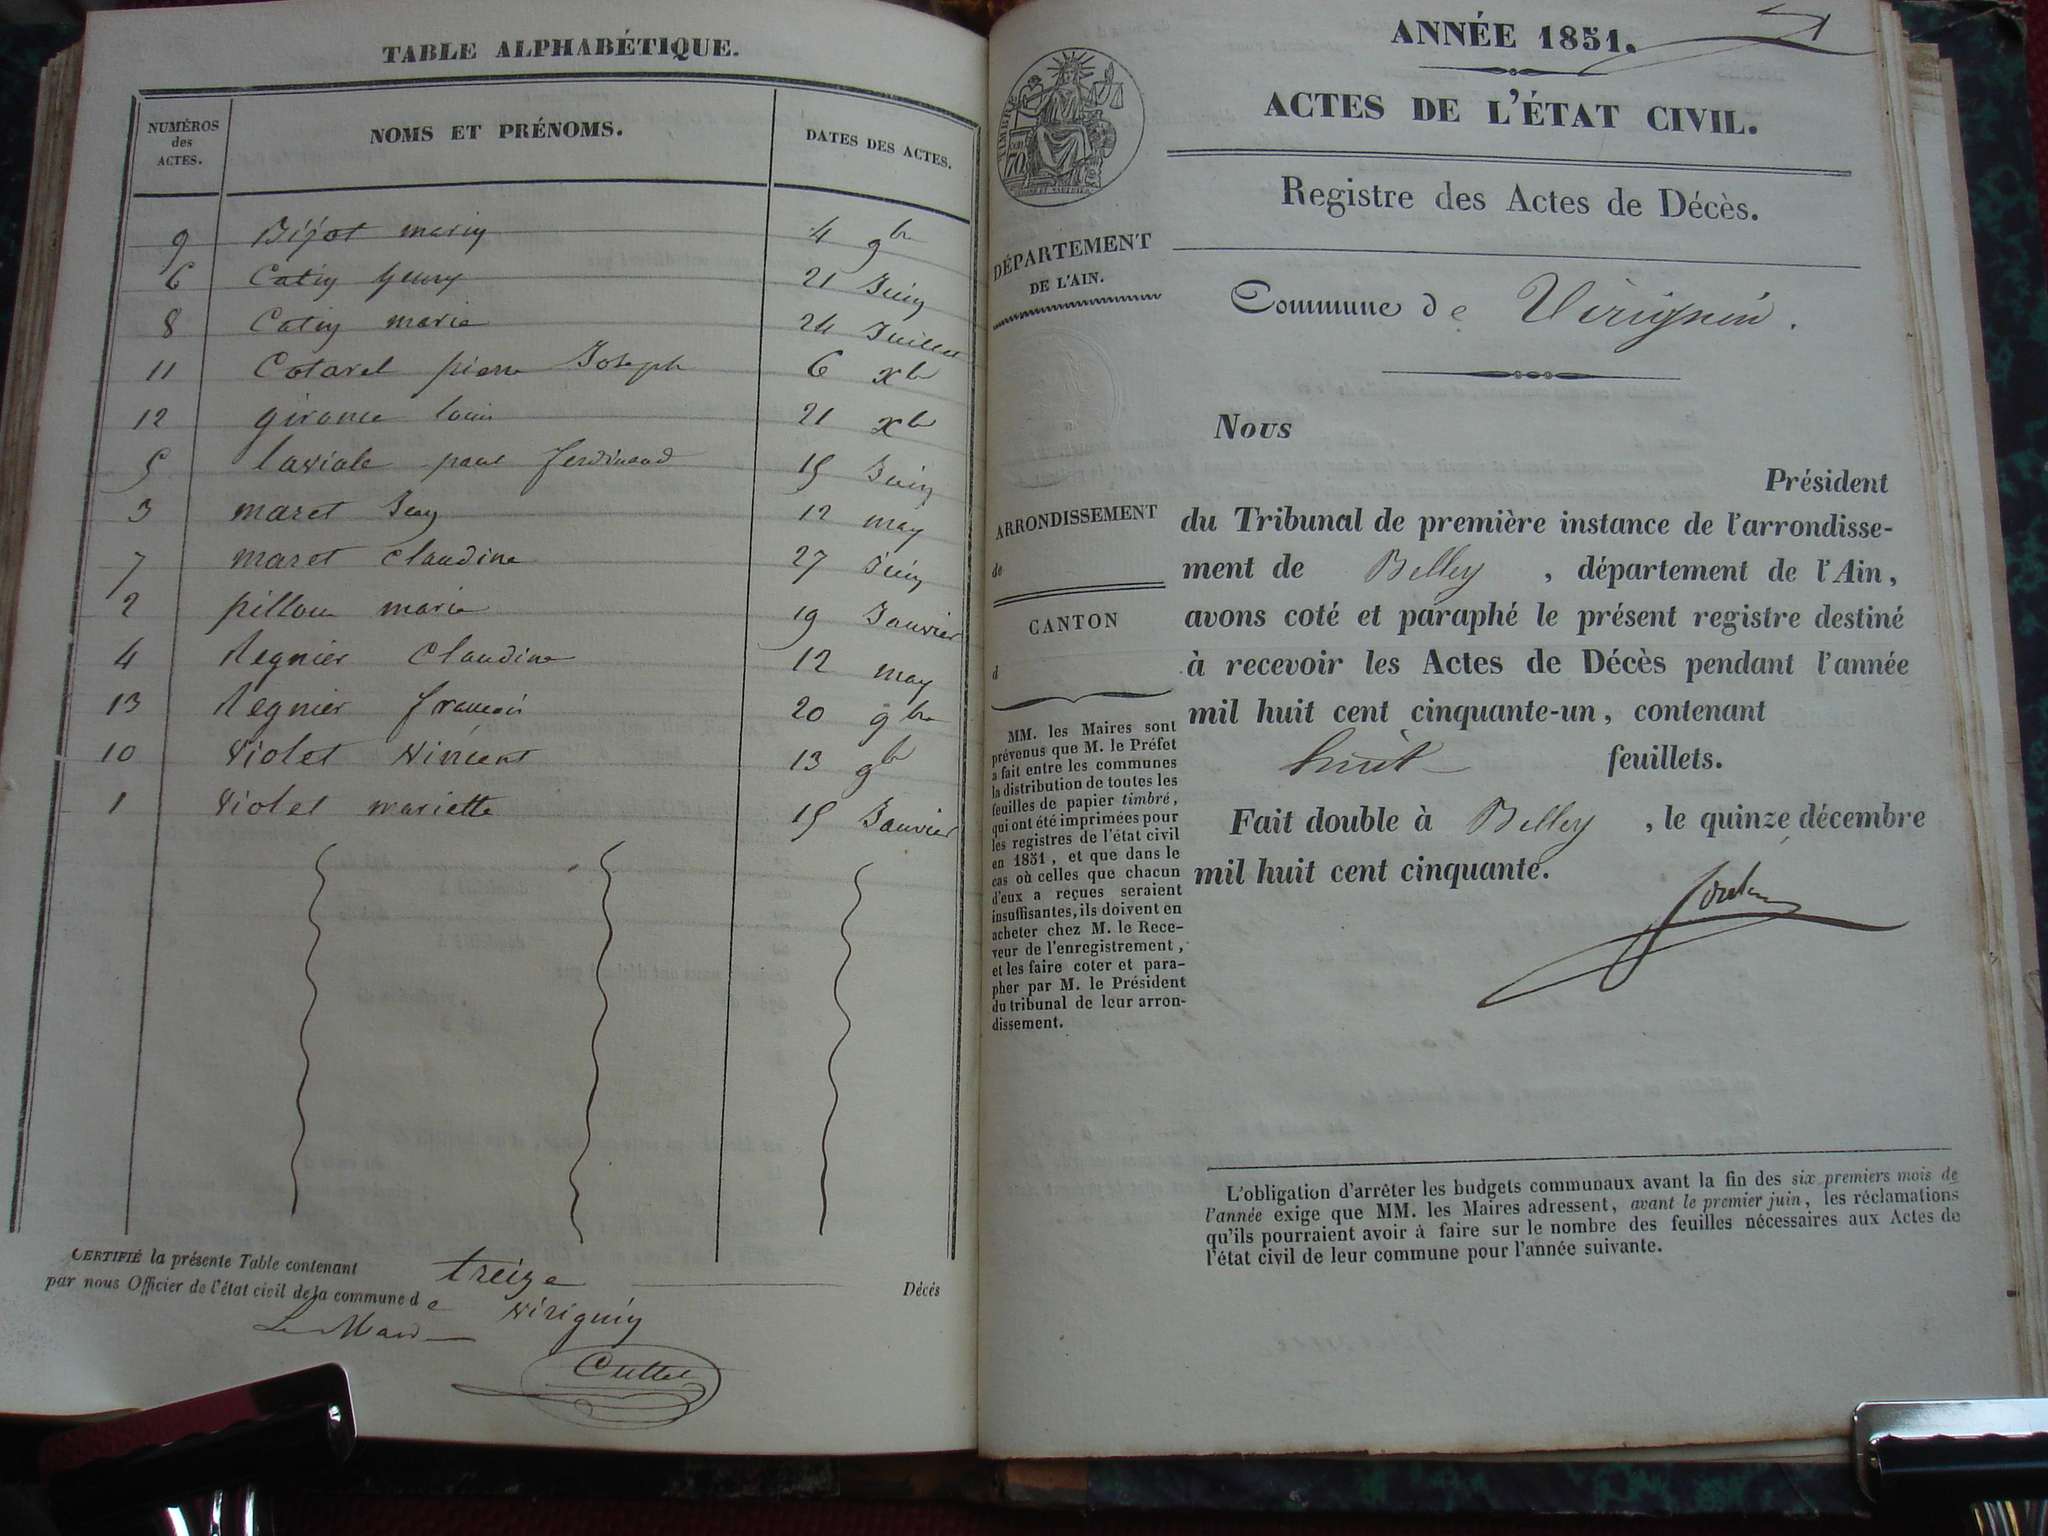 TABLE ALPHABÉTIQUE.
NUMÉROS des ACTES. NOMS ET PRÉNOMS. DATES DES ACTES.
9 Bijot marin 4 9bre
6 Catin henry 21 Juin
8 Catin marie 24 Juillet
11 Cotarel pierre Joseph 6 xbre
12 21 xbre
5 laviale paul ferdinand 15 Juin
3 maret Jean 12 may
7 maret Claudine 27 Juin
2 pilloux marie 19 Janvier
4 Regnier Claudine 12 may
13 Regnier françois 20 9bre
10 Violet Vincent 13 9b
1 Violet mariette 15 Janvier
CERTIFIÉ la présente Table contenant treize Décès
par nous Officier de l'état civil de la commune de Virignin
Le Maire
Cullet
ANNÉE 1851.
ACTES DE L'ÉTAT CIVIL.
Registre des Actes de Décès.
TIMBRE
70
DÉPARTEMENT
DE L'AIN.
Commune de Virignin.
ARRONDISSEMENT
de
CANTON
d
MM. les Maires sont
prévenus que M. le Préfet
a fait entre les communes
la distribution de toutes les
feuilles de papier timbré,
qui ont été imprimées pour
les registres de l'état civil
en 1851, et que dans le
cas où celles que chacun
d'eux a reçues seraient
insuffisantes, ils doivent en
acheter chez M. le Rece-
veur de l'enregistrement,
et les faire coter et para-
pher par M. le Président
du tribunal de leur arron-
dissement.
Nous
Président
du Tribunal de première instance de l'arrondisse-
ment de Belley, département de l'Ain,
avons coté et paraphé le présent registre destiné
à recevoir les Actes de Décès pendant l'année
mil huit cent cinquante-un, contenant
huit feuillets.
Fait double à Belley, le quinze décembre
mil huit cent cinquante.
L'obligation d'arrêter les budgets communaux avant la fin des six premiers mois de
l'année exige que MM. les Maires adressent, avant le premier juin, les réclamations
qu'ils pourraient avoir à faire sur le nombre des feuilles nécessaires aux Actes de
l'état civil de leur commune pour l'année suivante.